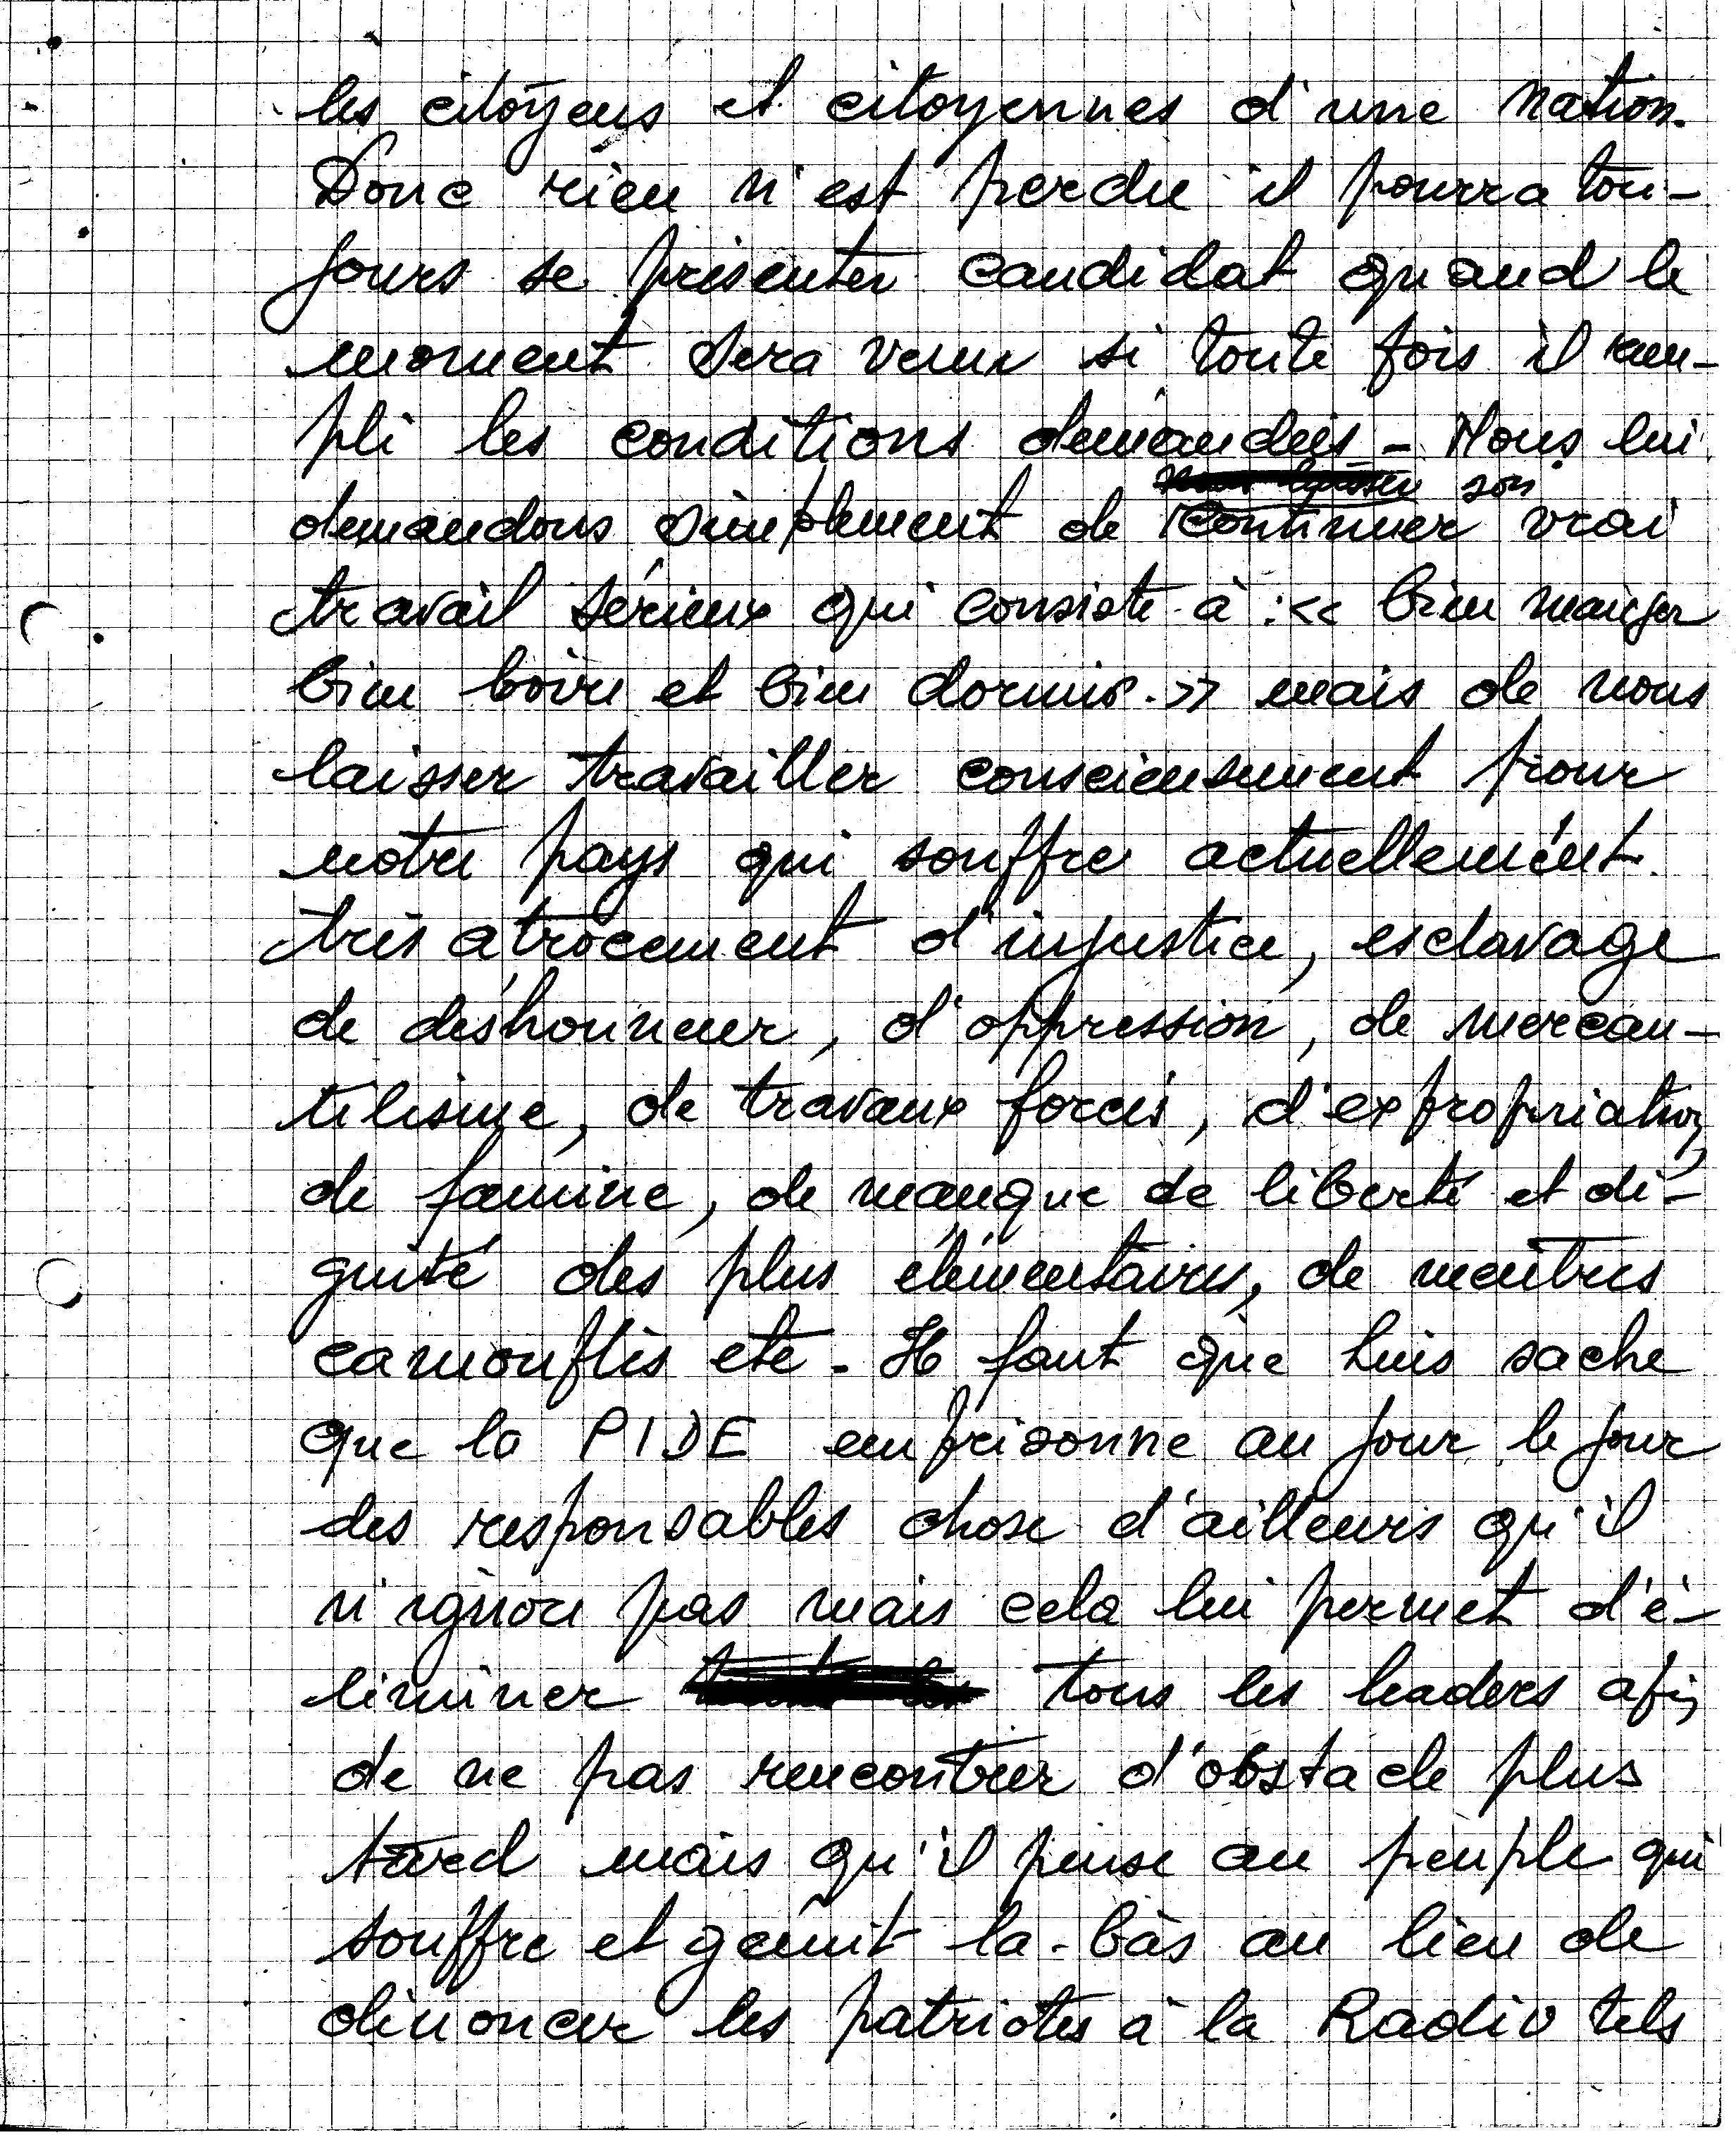 les citoyens et citoyennes d'une nation.
Donc rien n'est perdu il pourra tou-
jours se présenter candidat quand le
moment sera venu si toute fois il rem-
pli les conditions demandées - Nous lui
son
demandons simplement de continuer vrai
travail sérieux qui consiste à : << bien manger
bien boire et bien dormir. >> mais de nous
laisser travailler consciensement pour
notre pays qui souffre actuellement
très atrocement d'injustice, esclavage
de déshonneur, d'oppression, de mercan-
tilisme, de travaux forcés, d'expropriation,
de famine, de manque de liberté et di-
gnité des plus élémentaires, de meutres
camouflés etc. Il faut que Luis sache
que la PIDE emprisonne au jour le jour
des responsables chose d'ailleurs qu'il
n'ignore pas mais cela lui permet d'é-
liminer tous les leaders afin
de ne pas rencontrer d'obstacle plus
tard mais qu'il pense au peuple qui
souffre et gémit la-bas au lieu de
dénoncer les patriotes à la Radio tels